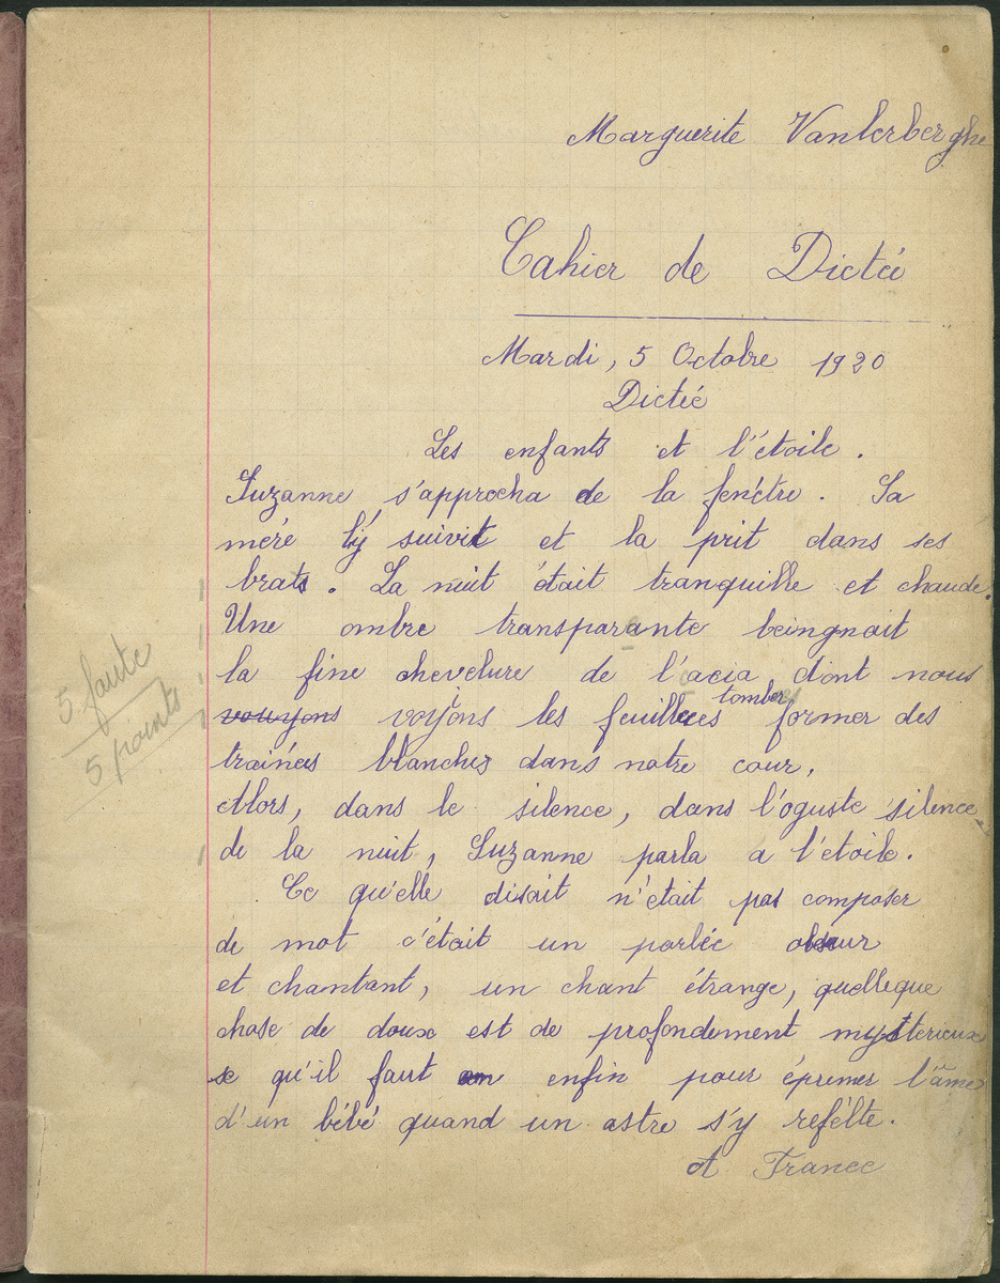 Marguerite Vanlerberghe
Cahier de Dictée
Mardi, 5 Octobre 1920
Dictée
Les enfants et l'étoile.
Suzanne s'approcha de la fenêtre. Sa
mére l'y suivit et la prit dans ses
brats. La nuit était tranquille et chaude.
Une ombre transparante beingnait
la fine chevelure de l'acia dont nous
vouyons voyions les feuillees tomber former des
trainées blanches dans notre cour.
Alors, dans le silence, dans l'oguste silence
de la nuit, Suzanne parla a l'etoile.
Ce qu'elle disait n'était pas composer
de mot c'était un parlée obscur
et chantant, un chant étrange, quelleque
chose de doux est de profondement mysterieux
se qu'il faut enfin pour éprimer l'âme
d'un bébé quand un astre s'y refélte.
A France
5 faute
5 points